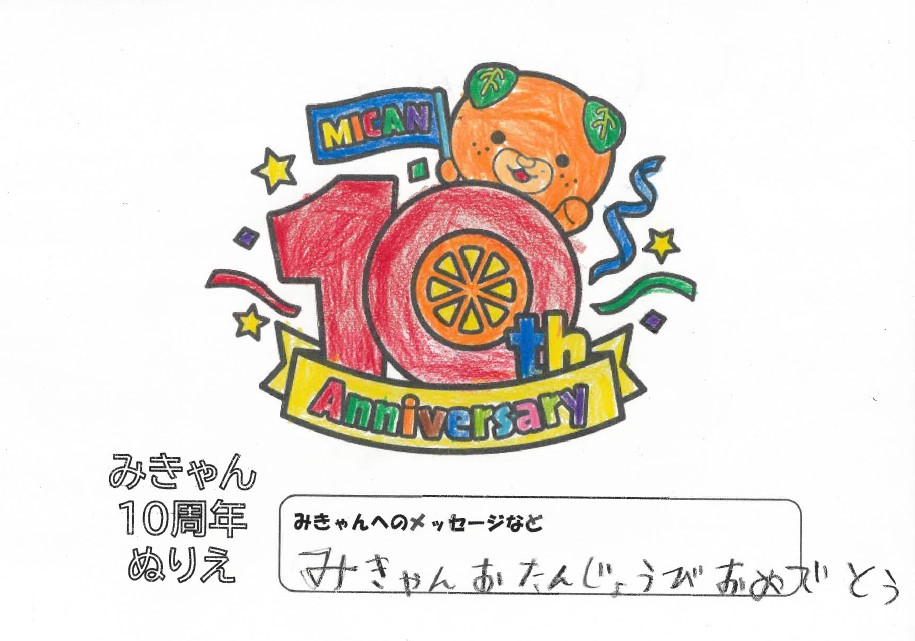 MICAN
10th
Anniversary
みきゃん
10周年
ぬりえ
みきゃんへのメッセージなど
みきゃんおたんじょうびおめでとう